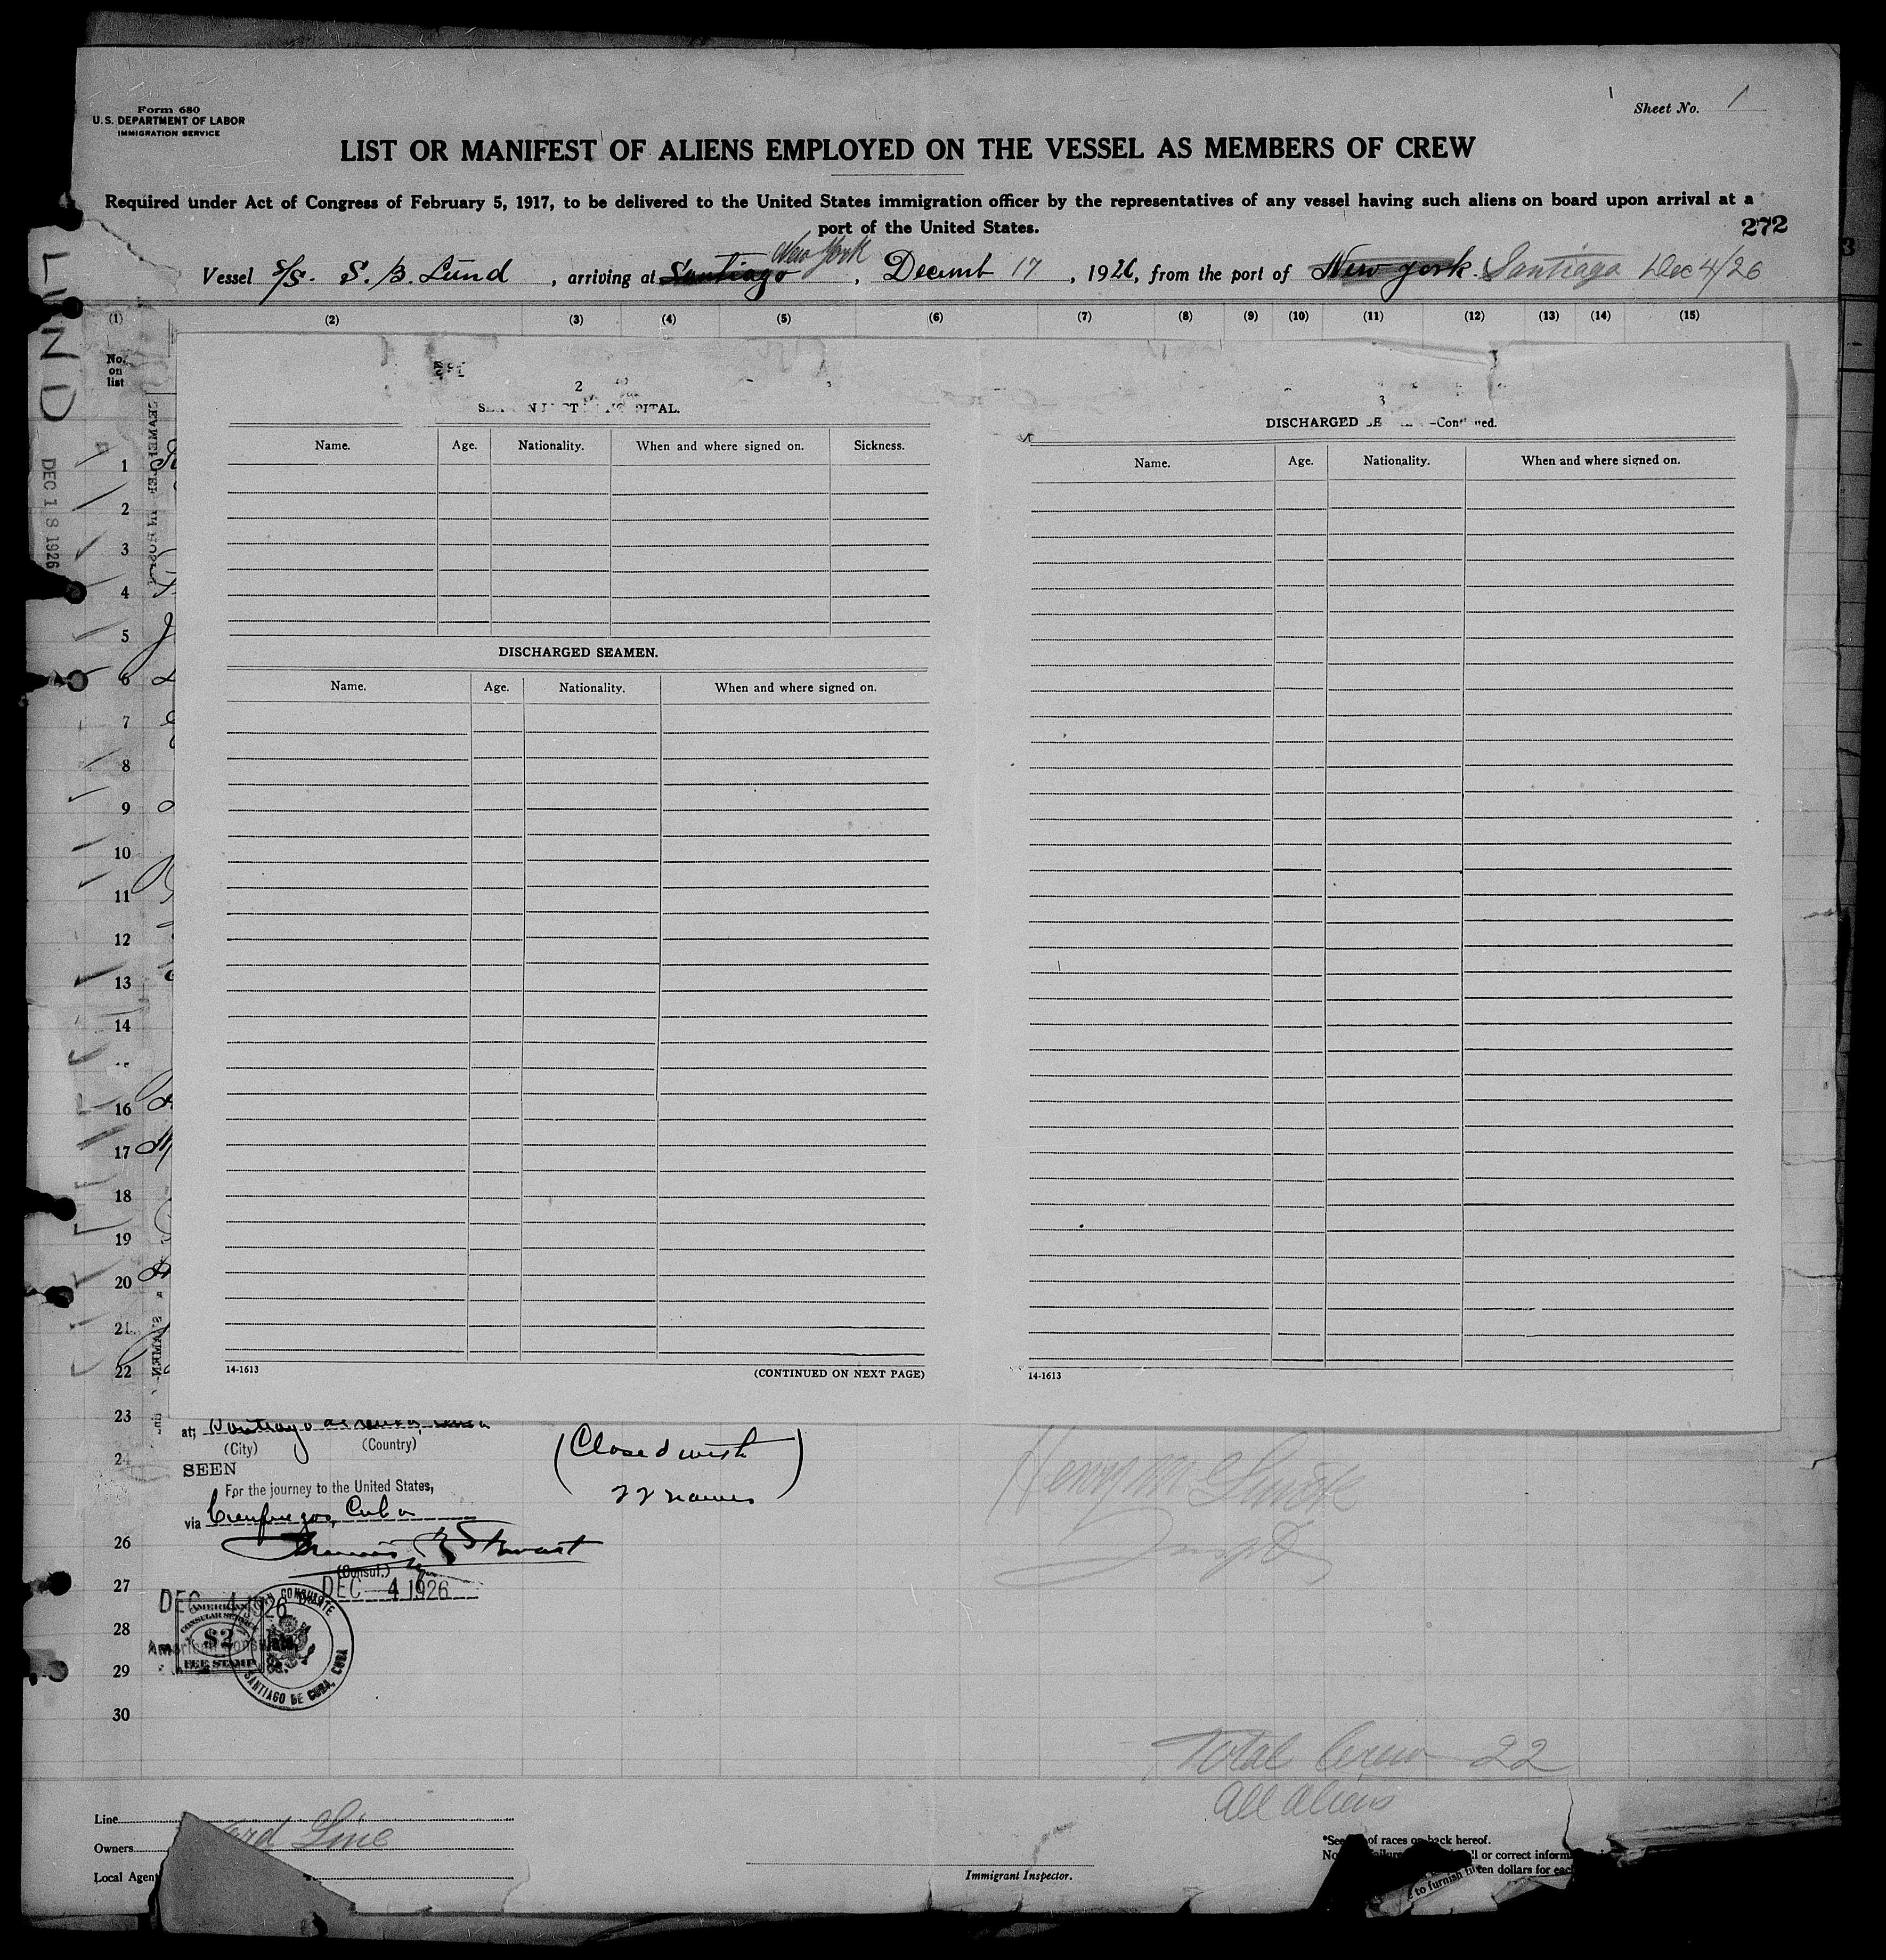 Form 680
U.S. DEPARTMENT OF LABOR
IMMIGRATION SERVICE
Sheet No. 1
LIST OR MANIFEST OF ALIENS EMPLOYED ON THE VESSEL AS MEMBERS OF CREW
Required under Act of Congress of February 5, 1917, to be delivered to the United States immigration officer by the representatives of any vessel having such aliens on board upon arrival at a
port of the United States.
272
New York
Vessel S/S. S. B. Lund, arriving at Santiago, Decemb 17, 1926, from the port of New York. Santiago Dec 4/26
(1) (2) (3) (4) (5) (6) (7) (8) (9) (10) (11) (12) (13) (14) (15)
No. on list
LUND
DEC 18 1926
2
PITAL.
Name. Age. Nationality. When and where signed on. Sickness.
DISCHARGED SEAMEN.
Name. Age. Nationality. When and where signed on.
14-1613 (CONTINUED ON NEXT PAGE)
3
DISCHARGED
Name. Age. Nationality. When and where signed on.
14-1613
1
2
3
4
5
6
7
8
9
10
11
12
13
14
16
17
18
19
20
21
22
23
24
26
27
28
29
30
at; Santiago de Cuba, Cuba
(City) (Country)
SEEN
For the journey to the United States,
via Cienfuegos, Cuba
(Consul.)
DEC 4 1926
DEC 4 1926
AMERICAN
CONSULAR SERVICE
$2
FEE STAMP
American Consulate
CONSULATE
SANTIAGO DE CUBA, CUBA
(Closed with
22 names)
Total Crew 22
All Aliens
Line
Owners
Line
Local Agent
Immigrant Inspector.
*See of races on back hereof.
or correct
ten dollars for each
to furnish